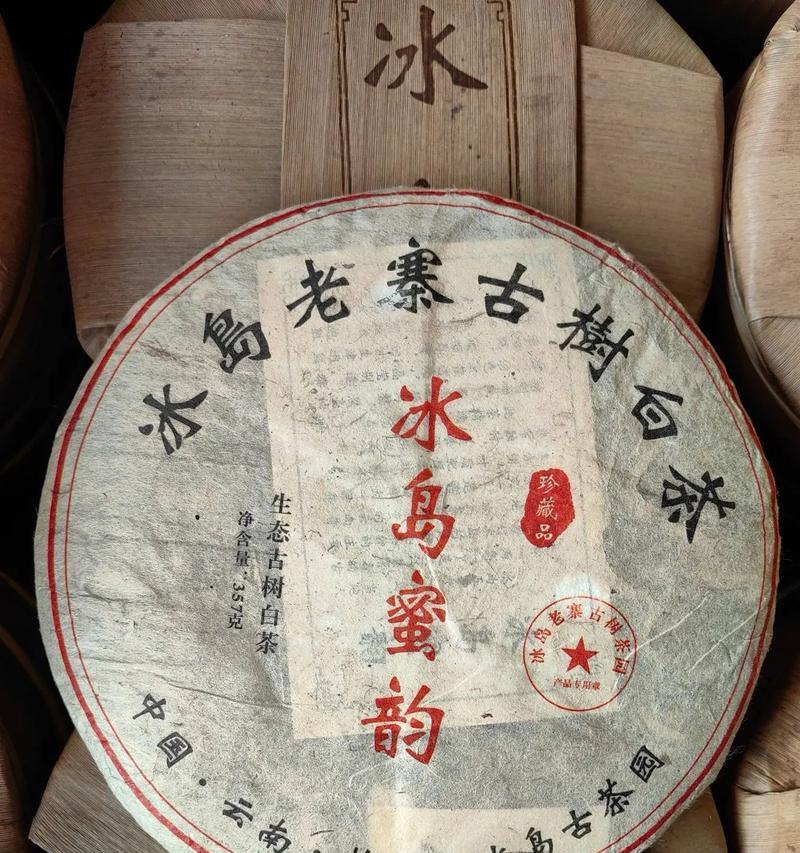 冰
冰島老寨古樹白茶
冰岛蜜韵
珍藏品
生态古树白茶
净含量：357克
冰岛老寨古树茶园
产品专用章
中国·云南
岛古茶园